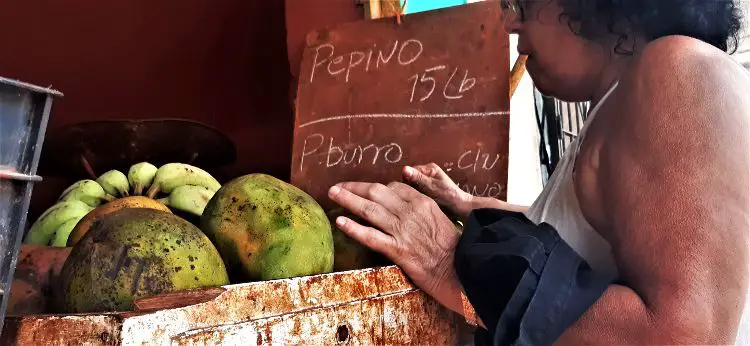 Pepino
15 Lb
P. burro ..c/u